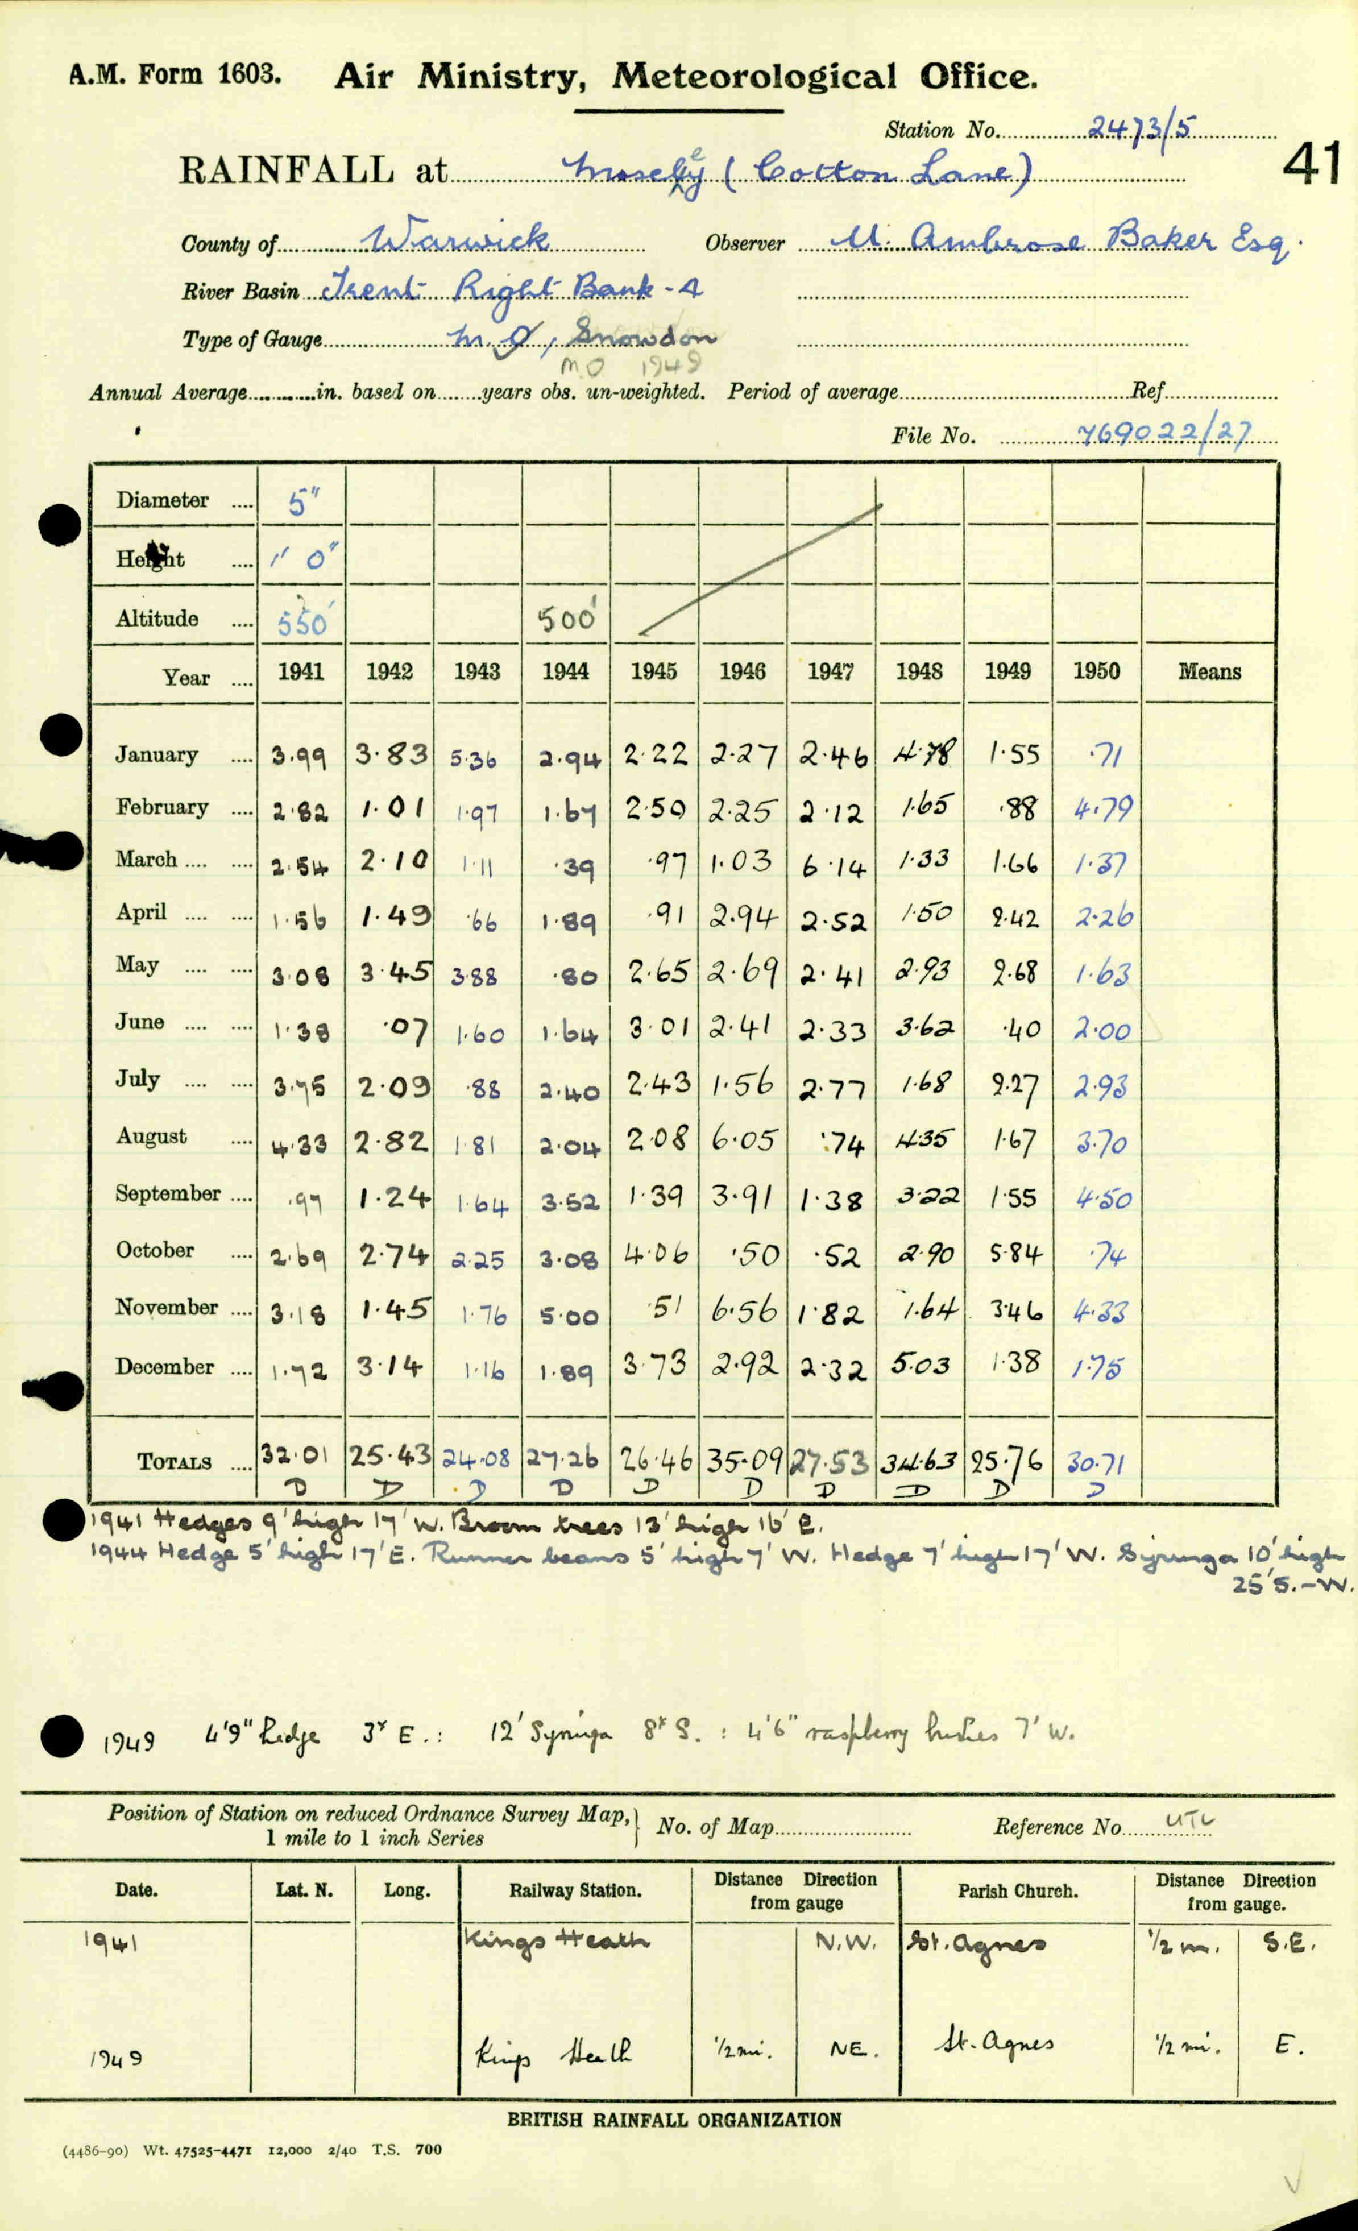 A.M. Form 1603. Air Ministry, Meteorological Office.
Station No. 2473/5
RAINFALL at Moseley (Cotton Lane) 41
County of Warwick Observer W. Ambrose Baker Esq.
River Basin Trent Right Bank - 4
Type of Gauge M.O, Snowdon
M.O 1949
Annual Average in. based on years obs. un-weighted. Period of average Ref
File No. 769022/27
Diameter 5"
Height 1' 0"
Altitude 550' 500'
Year 1941 1942 1943 1944 1945 1946 1947 1948 1949 1950 Means
January 3.99 3.83 5.36 2.94 2.22 2.27 2.46 4.78 1.55 .71
February 2.82 1.01 1.97 1.67 2.50 2.25 2.12 1.65 .88 4.79
March 2.54 2.10 1.11 .39 .97 1.03 6.14 1.33 1.66 1.37
April 1.56 1.49 .66 1.89 .91 2.94 2.52 1.50 2.42 2.26
May 3.08 3.45 3.88 .80 2.65 2.69 2.41 2.93 2.68 1.63
June 1.38 .07 1.60 1.64 3.01 2.41 2.33 3.62 .40 2.00
July 3.75 2.09 .88 2.40 2.43 1.56 2.77 1.68 2.27 2.93
August 4.33 2.82 1.81 2.04 2.08 6.05 .74 4.35 1.67 3.70
September .97 1.24 1.64 3.52 1.39 3.91 1.38 3.22 1.55 4.50
October 2.69 2.74 2.25 3.08 4.06 .50 .52 2.90 5.84 .74
November 3.18 1.45 1.76 5.00 .51 6.56 1.82 1.64 3.46 4.33
December 1.72 3.14 1.16 1.89 3.73 2.92 2.32 5.03 1.38 1.75
TOTALS 32.01 25.43 24.08 27.26 26.46 35.09 27.53 34.63 25.76 30.71
D D D D D D D D D D
1941 Hedges 9' high 17' W. Broom trees 13' high 16' E.
1944 Hedge 5' high 17' E. Runner beans 5' high 7' W. Hedge 7' high 17' W. Syrunga 10' high
25' S.-W.
1949 4'9" hedge 3' E.: 12' Syringa 8' S.: 4'6" raspberry bushes 7' W.
Position of Station on reduced Ordnance Survey Map, No. of Map Reference No.
1 mile to 1 inch Series
Date. Lat. N. Long. Railway Station. Distance Direction from gauge Parish Church. Distance Direction from gauge.
1941 Kings Heath N.W. St. Agnes 1/2 m. S.E.
1949 Kings Heath 1/2 mi. NE. St. Agnes 1/2 mi. E.
BRITISH RAINFALL ORGANIZATION
(4486-90) Wt. 47525-4471 12,000 2/40 T.S. 700